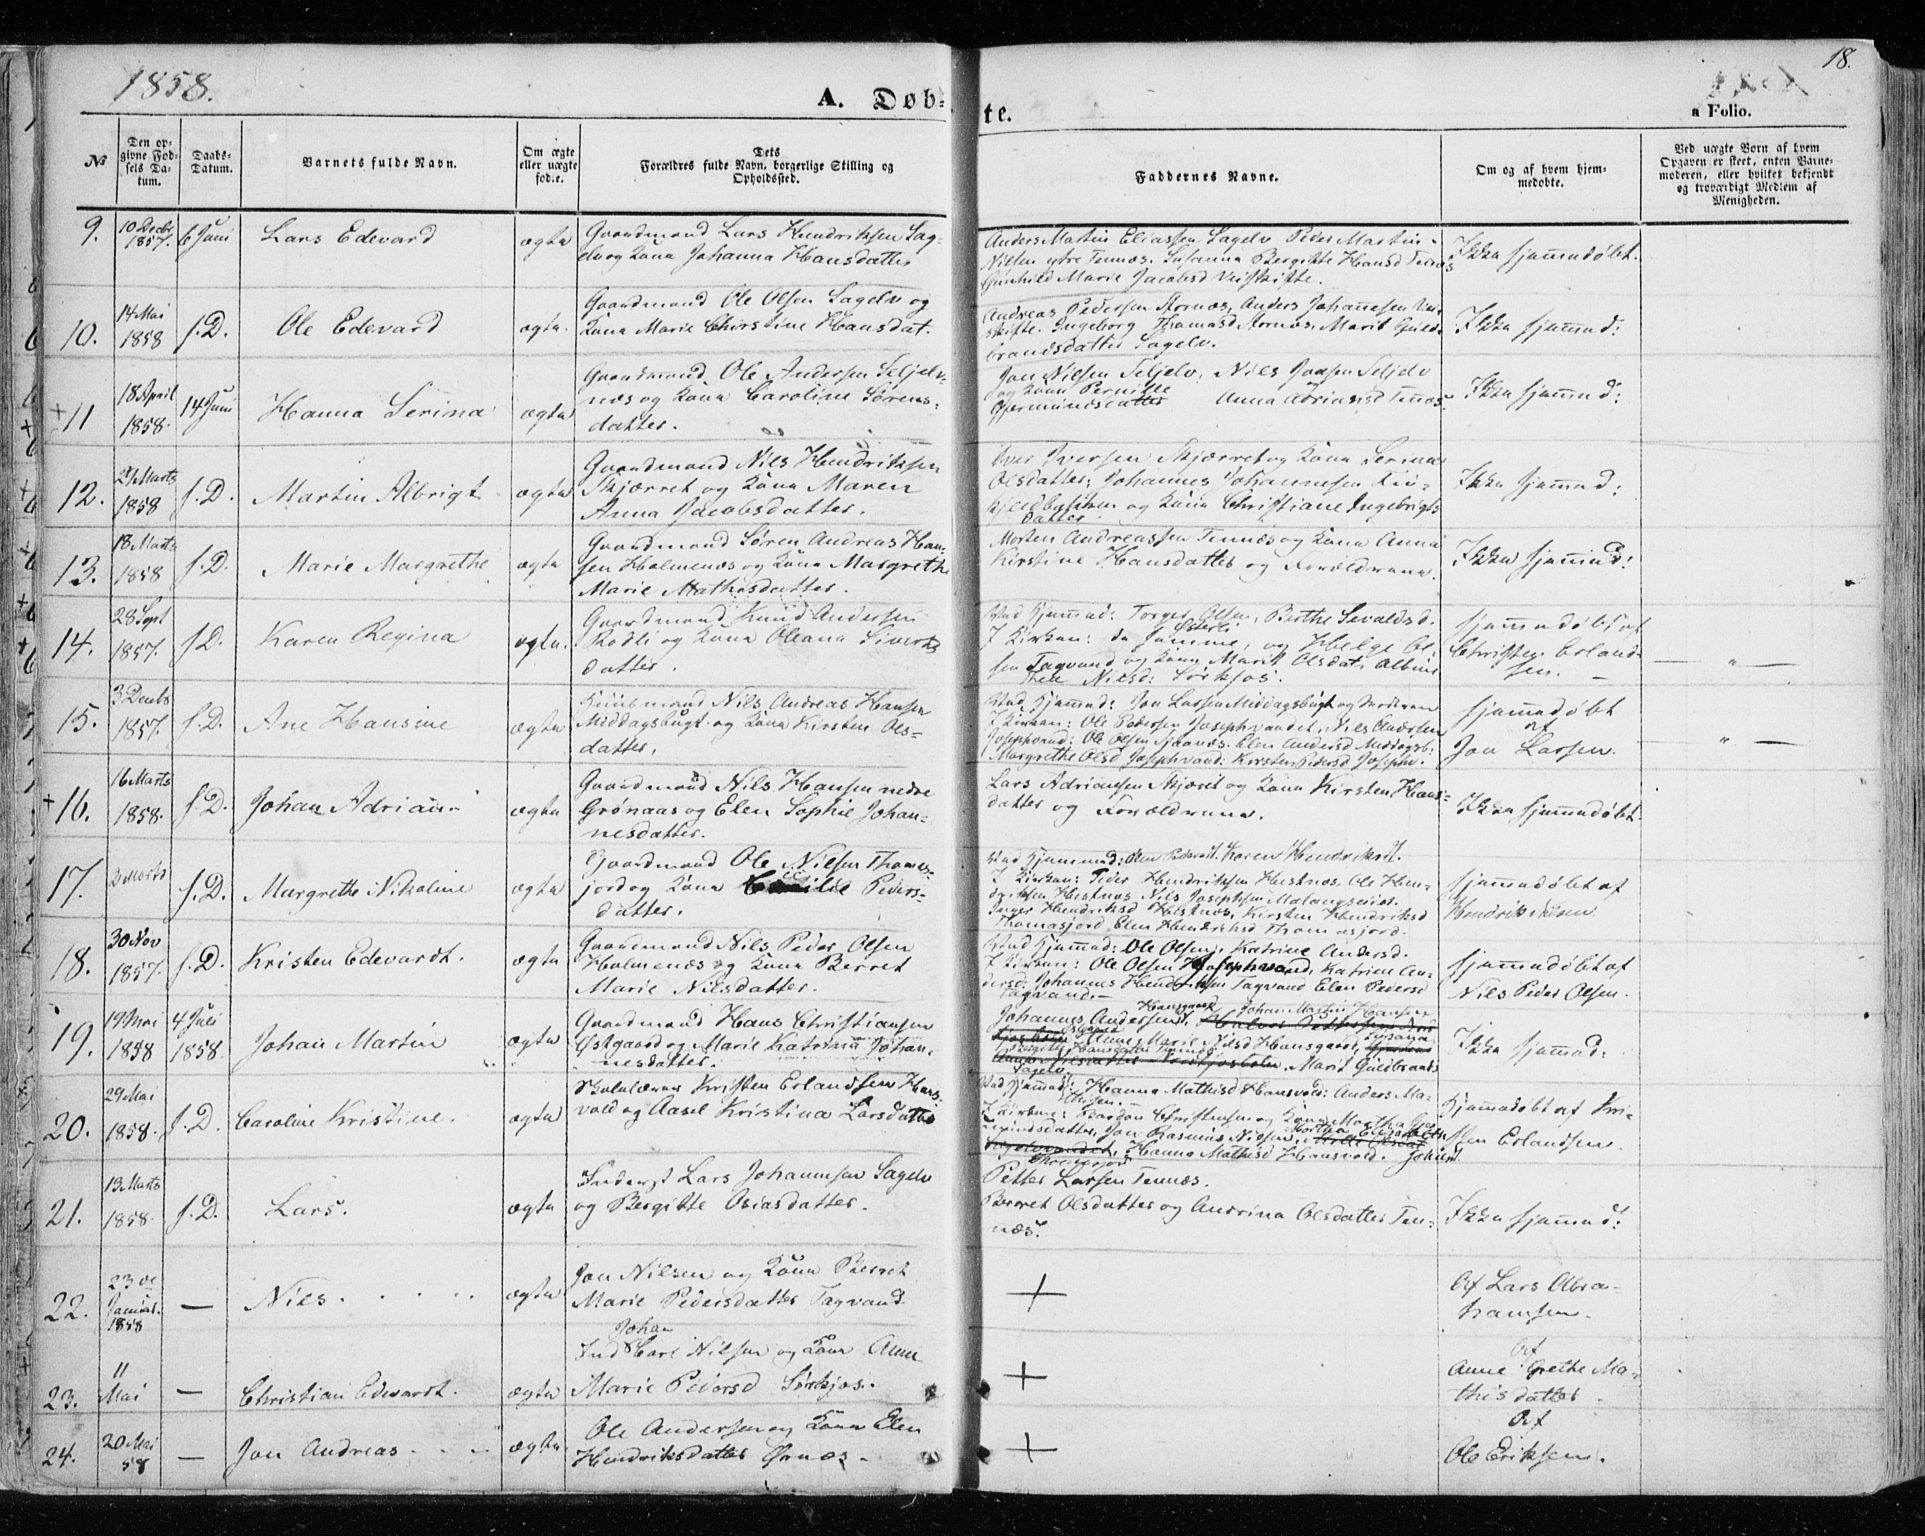 1858.
18.
A. Døb-
te.
a Folio.
№
Den op-
givne Fød-
sels Da-
tum.
Daabs-
Datum.
Barnets fulde Navn.
Om ægte
eller uægte
fød.e.
Dets
Forældres fulde Navn, borgerlige Stilling og
Opholdssted.
Faddernes Navne.
Om og af hvem hjem-
medøbte.
Ved uægte Børn af hvem
Opgaven er skeet, enten Barne-
moderen, eller hvilket bekjendt
og troværdigt Medlem af
Menigheden.
9.
10 Decbr
1857.
6 Juni
Lars Edevard
ægte
Gaardmand Lars Hendriksen Sag-
elv og Kone Johanna Hansdatter
Anders Martin Eliassen Sagelv Peder Martin
Nielsen ytre Tennæs. Susanna Bergitte Hansd Tennæs
Gunhild Marie Jacobsd
Ikke hjemmedøbt.
10.
14 Mai
1858
s. D.
Ole Edevard
ægte.
Gaardmand Ole Olsen Sagelv og
Kone Marie Christine Hansdat.
Andreas Pedersen Stornæs, Anders Johannesen
Ingeborg Thomasd Stornæs, Marit Guld-
brandsdatter Sagelv.
Ikke hjemmed:
+ 11
18 April
1858.
14 Juni
Hanna Serina
ægte
Gaardmand Ole Andersen Seljelv-
næs og Kone Caroline Sørens-
datter.
Jon Nilsen Seljelv, Nils Jonsen Seljelv
og Kone Pernille
Gjermundsdatter Anna Adriansd Tennæs.
Ikke hjemmed:
12.
21 Marts
1858
s. D.
Martin Albrigt
ægte
Gaardmand Nils Hendriksen
Skjærret og Kone Maren
Anna Jacobsdatter.
Iver Iversen Skjærret og Kone Serina
Olsdatter, Johannes Johannesen
og Kone Christiane Ingebrigts
datter.
Ikke hjemmed:
13.
18 Marts
1858
s. D.
Marie Margrethe
ægte
Gaardmand Søren Andreas Han-
sen Holmenæs og Kone Margrethe
Marie Mathisdatter.
Morten Andreassen Tennæs og Kone Anna
Kirstine Hansdatter og Forældrene.
Ikke hjemmed:
14.
28 Sept
1857.
s. D.
Karen Regina
ægte.
Gaardmand Knud Andersen
Rodli og Kone Oleana Siverts
datter.
Ved Hjemmed: Torger Olsen, Berthe Sevaldsd.
I Kirken: de samme, og Helge Ol-
sen Tagvand og Kone Marit Olsdat. Albine
Nielsd: Sørkjos.
hjemmedøbt af
Christen Erland-
sen.
— " —
15.
3 Decbr
1857.
s. D.
Ane Hansine
ægte
Huusmand Nils Andreas Hansen
Middagsbugt og Kone Kirsten Ols-
datter.
Ved Hjemmed: Jon Larsen Middagsbugt og Moderen
I Kirken: Ole Pedersen Josephvandet, Nils Andersen
Josephvand: Ole Olsen Elen Andersd Middagsb:
Margrethe Olsd Josephvand: Kirsten Pedersd Josephv.
hjemmedøbt
af
Jon Larsen.
" —
+ 16.
16 Marts
1858.
s. D.
Johan Adrian
ægte
Gaardmand Nils Hansen nedre
Grønaas og Elen Sophie Johan-
nesdatter.
Lars Adriansen Skjæret og Kone Kirsten Hans-
datter og Forældrene.
Ikke hjemmedøbt
17.
Marts
s. D.
Margrethe Nikoline
ægte
Gaardmand Ole Nilsen Thomas-
jord og Kone Peders-
datter.
Ved Hjemmed: Elen Pedersd. Karen Hendriksd.
I Kirken: Peder Hendriksen Hestnæs, Ole Hen-
driksen Hestnæs Nils Josephsen Malangseidet.
Inger Hendriksd Hestnæs, Kirsten Hendriksd
Thomasjord, Elen Hendriksd Thomasjord.
hjemmedøbt af
Hendrik Nilsen.
18.
30 Nov
1857.
s. D.
Kristen Edevardt.
ægte
Gaardmand Nils Peder Olsen
Holmenæs og Kone Berret
Marie Nilsdatter.
Ved Hjemmed: Ole Olsen, Katrine Andersd.
I Kirken: Ole Olsen Josephvand, Katrine An-
dersd: Johannes Hendriksen Tagvand Elen Pedersd
Tagvand.
hjemmedøbt af
Nils Peder Olsen.
19.
19 Mai
1858
4 Juli
1858.
Johan Martin
ægte
Gaardmand Hans Christiansen
Østgaard og Marie Katrine Johan-
nesdatter.
Johannes Andersen, Johan Martin Hansen
Anne Marie Nilsd Hansgaard,
Marit Guldbrands
Sagelv.
Ikke hjemmed:
20.
29 Mai
1858.
s. D.
Caroline Kristine.
ægte
Skolelærer Kristen Erlandsen Hans-
vold og Aasel Kristina Larsdatter
Ved Hjemmed: Hanna Mathisd Hansvold: Anders Ma-
thisen.
I Kirken: Bardon Christensen og Kone Martha
Jon Rasmus Nilsen,
Hanna Mathisd Hansvold.
Hjemmedøbt af Kri-
sten Erlandsen.
21.
13 Marts
1858.
s. D.
Lars.
ægte
Inderst Lars Johannesen Sagelv
og Bergitte Osiasdatter.
Petter Larsen Tennæs.
Berret Olsdatter og Andrina Olsdatter Ten-
næs.
Ikke hjemmed:
22.
23 de
Januar.
1858
—
Nils. . . . . .
ægte
Jon Nilsen og Kone Berret
Marie Pedersdatter Tagvand
+
Af Lars Abra-
hamsen.
23.
11
Mai
—
Christian Edevardt.
ægte
Johan
Ind Carl Nilsen og Kone Anne
Marie Pedersd Sørkjos.
+
Af
Anne Grethe Ma-
thisdatter.
24.
20 Mai
58
—
Jon Andreas . . .
ægte.
Ole Andersen og Kone Elen
Hendriksdatter Ørnæs.
+
Af
Ole Eriksen.